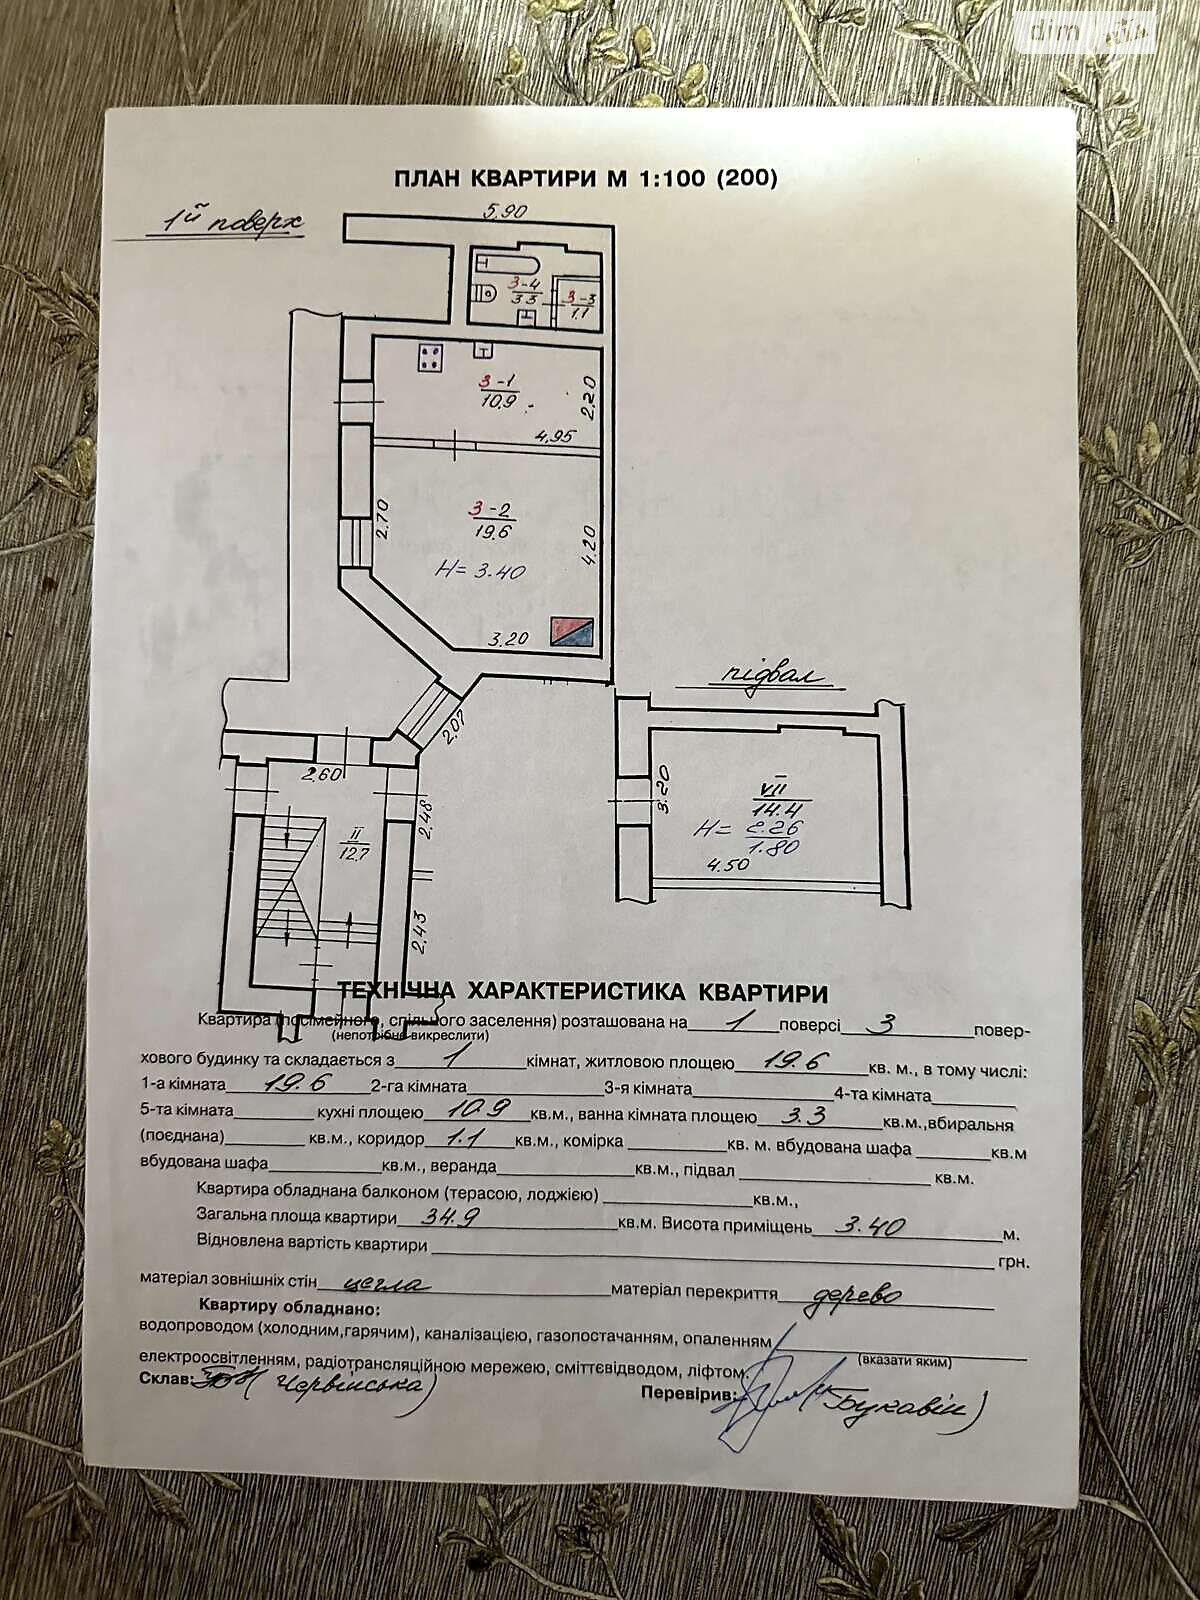 dim
ПЛАН КВАРТИРИ М 1:100 (200)
1й поверх
5.90
3-4
3.3
3-3
1.1
3-1
10.9
2.20
4.95
3-2
19.6
2.70
4.20
H= 3.40
3.20
2.07
підвал
3.20
VII
14.4
H= 2.26
1.80
4.50
2.60
II
12.7
2.48
2.43
ТЕХНІЧНА ХАРАКТЕРИСТИКА КВАРТИРИ
Квартира (посімейного, спільного заселення) розташована на 1 поверсі 3 повер-
(непотрібне викреслити)
хового будинку та складається з 1 кімнат, житловою площею 19.6 кв. м., в тому числі:
1-а кімната 19.6 2-га кімната 3-я кімната 4-та кімната
5-та кімната кухні площею 10.9 кв.м., ванна кімната площею 3.3 кв.м.,вбиральня
(поєднана) кв.м., коридор 1.1 кв.м., комірка кв. м. вбудована шафа кв.м
вбудована шафа кв.м., веранда кв.м., підвал кв.м.
Квартира обладнана балконом (терасою, лоджією) кв.м.,
Загальна площа квартири 34.9 кв.м. Висота приміщень 3.40 м.
Відновлена вартість квартири грн.
матеріал зовнішніх стін цегла матеріал перекриття дерево
Квартиру обладнано:
водопроводом (холодним,гарячим), каналізацією, газопостачанням, опаленням
(вказати яким)
електроосвітленням, радіотрансляційною мережею, сміттєвідводом, ліфтом.
Склав: (Червінська)
Перевірив: (Букавін)